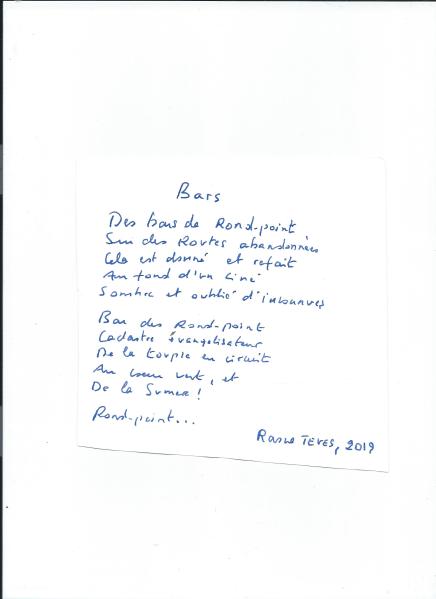 Bars
Des bars de Rond-point
Sur des Routes abandonnées
Cela est donné et refait
Au fond d'un Ciné
Sombre et oublié d'
Bar des Rond-point
Cadastre Évangélisateur
De la toupie en circuit
Au coeur vert, et
De la !
Rond-point...
TEVES, 2019